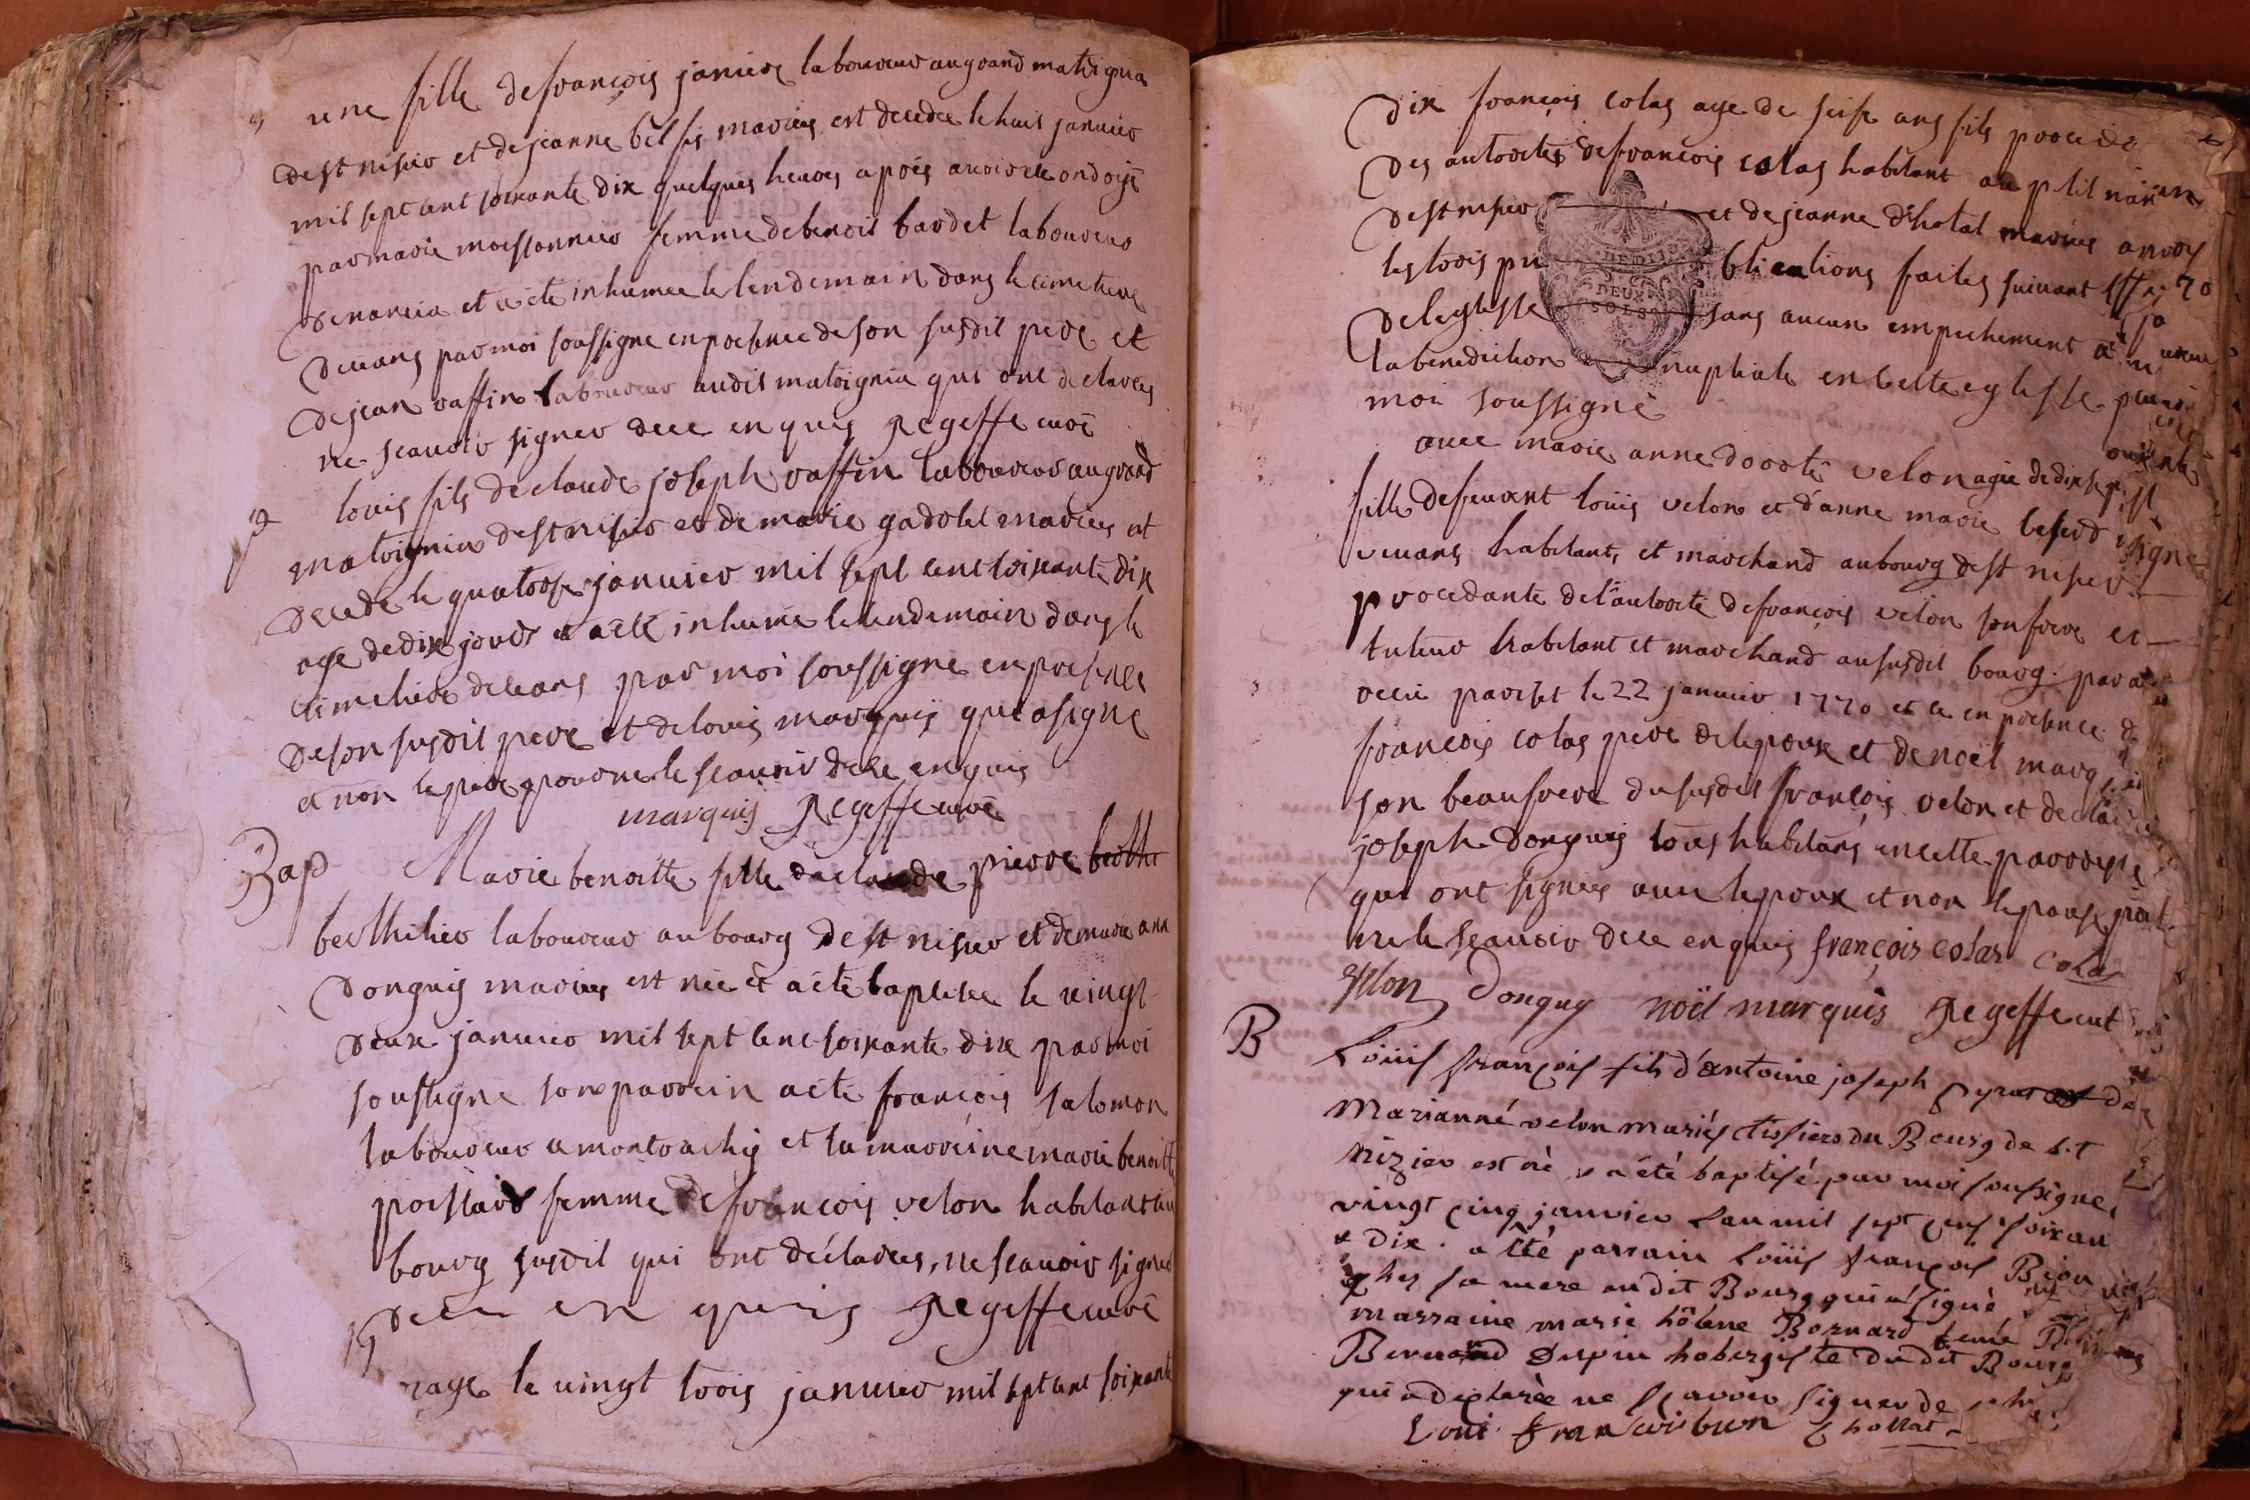 une fille de françois janier laboureur au grand matrigna
de st nisier et de jeanne bel ses mariés est decedée le huit janvier
mil sept cent soixante dix quelques heures après avoir été ondoÿé
par marie moissonnier femme de benoit bardet laboureur
et a été inhumée le lendemain dans le cimetiere
de ceans par moi soussigné en presence de son susdit pere et
de jean raffin laboureur audit matrignia qui ont declarés
ne scauoir signer de ce enquis Regeffe curé
louis fils de claude joseph raffin laboureur au grand
matrignia de st nisier et de marie gadolet mariés est
decede le quatorse janvier mil sept cent soixante dix
age de dix jours et a été inhumé le lendemain dans le
cimetiere de ceans par moi soussigné en presence
de son susdit pere et de louis marquis qui a signé
et non le pere pour ne le scauoir de ce enquis
marquis Regeffe curé
Bap Marie benoitte fille de claude pierre berthe
berthilier laboureur au bourg de st nisier et de marie ann
donguis mariés est née et a été baptisée le vingt
deux janvier mil sept cent soixante dix par moi
soussigné son parrein a été françois salomon
laboureur a montrachy et la marreine marie benoitte
poissard femme de françois velon habitant au
bourg susdit qui ont déclarés ne scauoir signer
de ce enquis Regeffe curé
riage le vingt trois janvier mil sept cent soixante
dix françois colas age de seise ans fils procede
des autorités de françois colas habitant au ptit
de st nisier et de jeanne d'hotal mariés apres
les trois publications faites suivant
de leglisse sans aucun empechement a
la benediction nuptiale en cette eglisse par
moi soussigné
avec marie anne dorote velon agée de dix sept
fille defeuant louis velon et d'anne marie
viuans habitant, et marchand au bourg de st nisier
procedante de l'autorité de françois velon son frere et
tuteur habitant et marchand au susdit bourg par
le 22 janvier 1770 et ce en presence de
françois colas pere de lepoux et de noël marquis
son beaufrere du susdit françois velon et de claude
joseph donguis tous habitans en cette parroisse
qui ont signés avec lepoux et non lepouse pour
ne le scauoir de ce enquis françois colas Colas
Velon Donguy noël marquis Regeffe curé
B Loüis françois fils d'antoine joseph et de
Marianne velon mariés tissiers du Bourg de St
Nizier est né & a été baptisé par moi soussigné
vingt cinq janvier L'an mil sept cens soixan
& dix. a été parrain Loüis françois
chez sa mere au dit Bourg qui a signé
marraine marie hélene Bernard
hobergiste du dit Bourg
qui a declarée ne scavoir signer de ce
Loui francoi Chollat